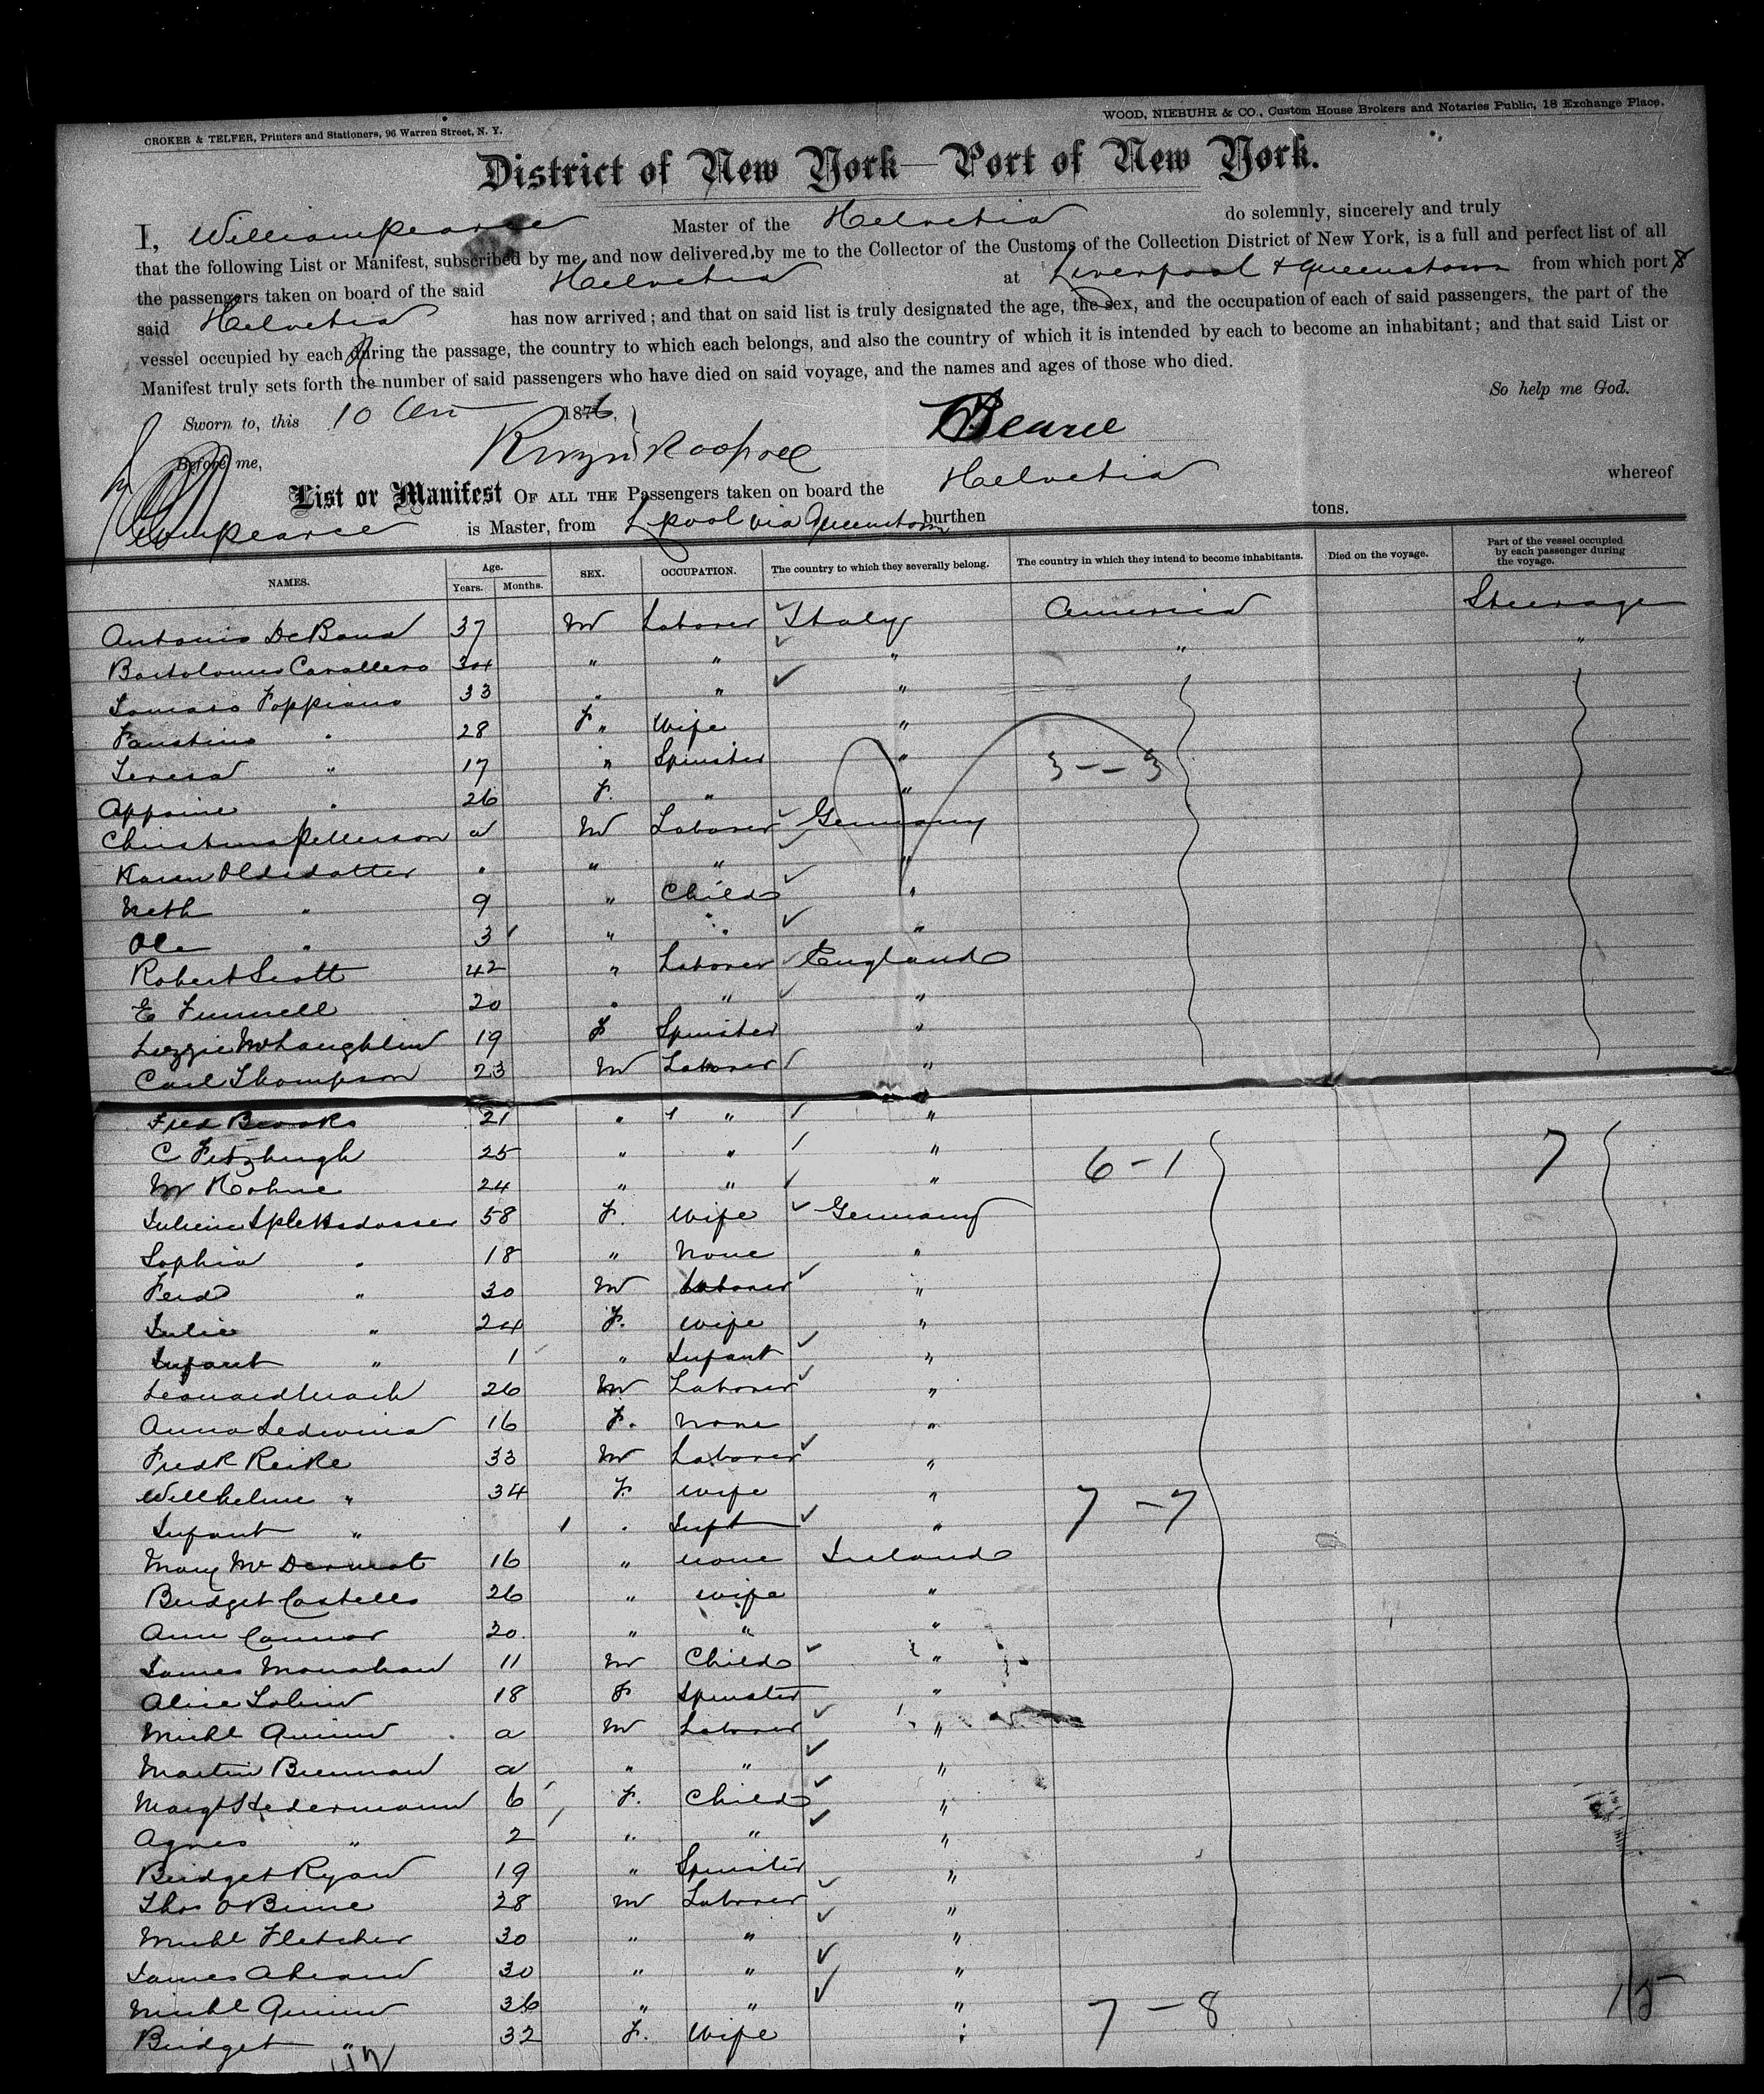 CROKER & TELFER, Printers and Stationers, 96 Warren Street, N. Y.
WOOD, NIEBUHR & CO., Custom House Brokers and Notaries Public, 18 Exchange Place.
District of New York—Port of New York.
I, William Pearce Master of the Helvetia do solemnly, sincerely and truly
that the following List or Manifest, subscribed by me, and now delivered by me to the Collector of the Customs of the Collection District of New York, is a full and perfect list of all
the passengers taken on board of the said Helvetia at Liverpool & Queenstown from which port
said Helvetia has now arrived; and that on said list is truly designated the age, the sex, and the occupation of each of said passengers, the part of the
vessel occupied by each during the passage, the country to which each belongs, and also the country of which it is intended by each to become an inhabitant; and that said List or
Manifest truly sets forth the number of said passengers who have died on said voyage, and the names and ages of those who died.
So help me God.
Sworn to, this 10 1876. Pearce
Before me,
List or Manifest OF ALL THE Passengers taken on board the Helvetia whereof
Wm Pearce is Master, from Lpool via Queenstown burthen tons.
NAMES. Age. Years. Months. SEX. OCCUPATION. The country to which they severally belong. The country in which they intend to become inhabitants. Died on the voyage. Part of the vessel occupied by each passenger during the voyage.
Antonio De Bona 37 M Laborer Italy America Steerage
Bartolomeo Cavallero 34 " " " " "
Tomaso Foppiano 33 " " "
Faustino " 28 F " Wife "
Teresa " 17 " Spinster "
" 26 F. " " 3 - - 3
Pellerson a M Laborer Germany
Karen Oldsdatter " " " "
Neth " 9 " Child "
Ole " 3 " " "
Robert Scott 42 " Laborer England
E Funnell 20 " " "
Lizzie McLaughlin 19 F Spinster "
Carl Thompson 23 M Laborer "
Fred Brooks 21 " " "
C Fitzhugh 25 " " " 6 - 1 7
M 24 " " "
Juliene Splettsdosser 58 F. Wife Germany
Sophia " 18 " None "
Ferd " 30 M Laborer "
Julie " 24 F. Wife "
Infant " 1 " Infant "
Leonard 26 M Laborer "
Anna Ledwina 16 F. None "
Fredk Reike 33 M Laborer "
Wilhelme " 34 F. Wife "
Infant " 1 " Inft " 7 - 7
Mary McDermot 16 " none Ireland
Bridget Costello 26 " wife "
Ann Connor 20 " " "
James Monahan 11 M Child "
Alice Tobin 18 F Spinster "
Michl Quinn a M Laborer "
Martin Brennan a " " "
Margt Hedermann 6 F. Child "
Agnes " 2 " " "
Bridget Ryan 19 " Spinster "
Thos O Brine 28 M Laborer "
Michl Fletcher 30 " " "
James Ahearn 30 " " "
Michl Quinn 36 " " " 7 - 8 15
Bridget " 32 F. Wife "